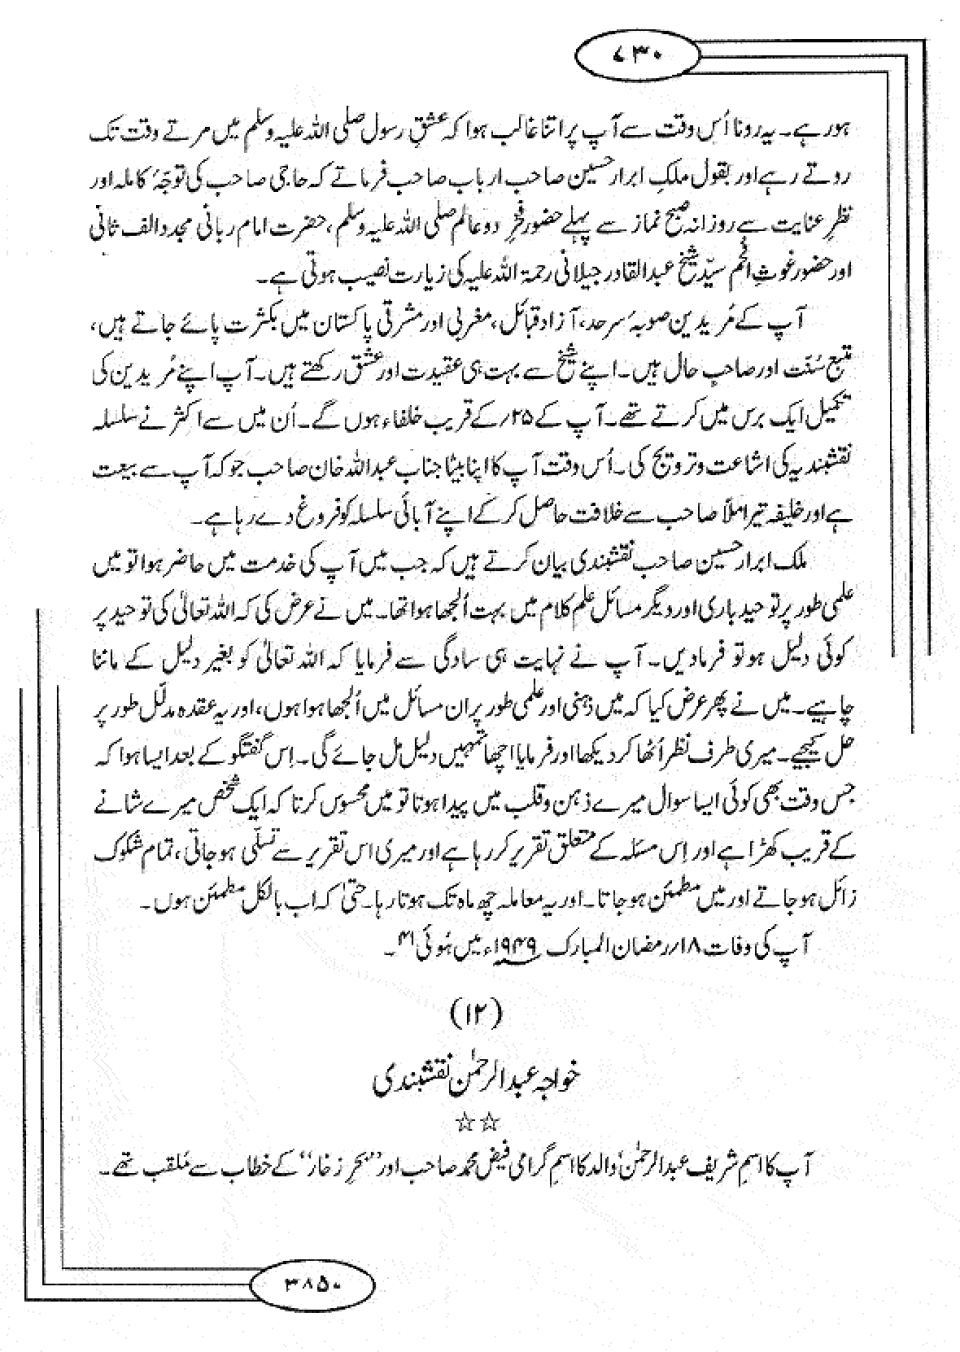 ۷۳۰
ہو رہے۔ یہ رونا اُس وقت سے آپ پر اتنا غالب ہوا کہ عشقِ رسول صلی اللہ علیہ وسلم میں مرتے وقت تک
روتے رہے اور بقول ملک ابرار حسین صاحب ارباب صاحب فرماتے کہ حاجی صاحب کی توجہٗ کاملہ اور
نظرِ عنایت سے روزانہ صبح نماز سے پہلے حضور فخرِ دو عالم صلی اللہ علیہ وسلم، حضرت امام ربانی مجدد الف ثانی
اور حضور غوثِ افخم سیّد شیخ عبدالقادر جیلانی رحمۃ اللہ علیہ کی زیارت نصیب ہوتی ہے۔
آپ کے مُریدین صوبہٗ سرحد، آزاد قبائل، مغربی اور مشرقی پاکستان میں بکثرت پائے جاتے ہیں،
متبع سُنّت اور صاحبِ حال ہیں۔ اپنے شیخ سے بہت ہی عقیدت اور عشق رکھتے ہیں۔ آپ اپنے مُریدین کی
تکمیل ایک برس میں کرتے تھے۔ آپ کے ۲۵؍ کے قریب خلفاء ہوں گے۔ اُن میں سے اکثر نے سلسلہ
نقشبندیہ کی اشاعت و ترویج کی۔ اُس وقت آپ کا اپنا بیٹا جناب عبداللہ خان صاحب جو کہ آپ سے بیعت
ہے اور خلیفہ تیراملّا صاحب سے خلافت حاصل کر کے اپنے آبائی سلسلہ کو فروغ دے رہا ہے۔
ملک ابرار حسین صاحب نقشبندی بیان کرتے ہیں کہ جب میں آپ کی خدمت میں حاضر ہوا تو میں
علمی طور پر توحید باری اور دیگر مسائل علم کلام میں بہت اُلجھا ہوا تھا۔ میں نے عرض کی کہ اللہ تعالیٰ کی توحید پر
کوئی دلیل ہو تو فرمادیں۔ آپ نے نہایت ہی سادگی سے فرمایا کہ اللہ تعالیٰ کو بغیر دلیل کے ماننا
چاہیے۔ میں نے پھر عرض کیا کہ میں ذہنی اور علمی طور پر ان مسائل میں اُلجھا ہوا ہوں، اور یہ عقدہ مدلّل طور پر
حل کیجیے۔ میری طرف نظر اُٹھا کر دیکھا اور فرمایا اچھا تمہیں دلیل مل جائے گی۔ اِس گفتگو کے بعد ایسا ہوا کہ
جس وقت بھی کوئی ایسا سوال میرے ذہن و قلب میں پیدا ہوتا تو میں محسوس کرتا کہ ایک شخص میرے شانے
کے قریب کھڑا ہے اور اِس مسئلہ کے متعلق تقریر کر رہا ہے اور میری اس تقریر سے تسلّی ہو جاتی، تمام شکوک
زائل ہو جاتے اور میں مطمئن ہو جاتا۔ اور یہ معاملہ چھ ماہ تک ہوتا رہا۔ حتیٰ کہ اب بالکل مطمئن ہوں۔
آپ کی وفات ۱۸؍ رمضان المبارک ۱۹۴۹ء میں ہُوئی ۴۱۔
(۱۲)
خواجہ عبدالرحمٰن نقشبندی
☆☆
آپ کا اسمِ شریف عبدالرحمٰن' والد کا اسمِ گرامی فیض محمد صاحب اور ''بحرِ زخار'' کے خطاب سے مُلقب تھے۔
۳۸۵۰